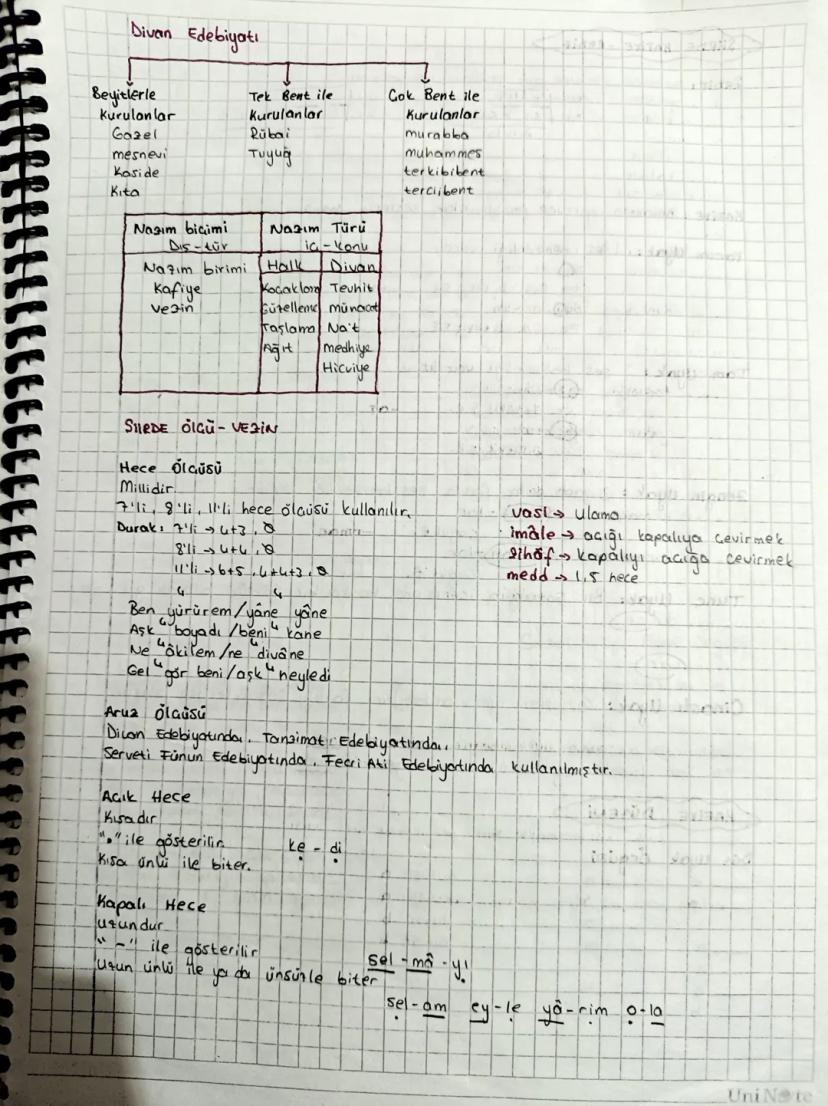 Divan Edebiyatı
Beyitlerle
Kurulanlar
Gazel
mesnevi
Kaside
Kıta
Tek Bent ile
Kurulanlar
Rübai
Tuyuğ
Çok Bent ile
Kurulanlar
murabba
muhammes
terkibibent
terciibent
Nazım biçimi
Dış-tür
Nazım birimi
Kafiye
Vezin
Nazım Türü
iç-konu
Halk
Koçaklama
Güzelleme
Taşlama
Ağıt
Divan
Tevhit
münacat
Na't
medhiye
Hicviye
ŞİİRDE ÖLÇÜ-VEZİN
Hece Ölçüsü
Millidir.
7'li, 8'li, 11'li hece ölçüsü kullanılır.
Durak: 7'li → 4+3, 0
8'li → 4+4, 0
11'li → 6+5, 4+4+3, 0
4 4
Ben yürürem/yâne yâne
Aşk boyadı/beni kane
Ne âkilem/ne divâne
Gel gör beni/aşk neyledi
vasl → ulama
imâle → açığı kapalıya çevirmek
zihâf → kapalıyı açığa çevirmek
medd → 1,5 hece
Aruz Ölçüsü
Divan Edebiyatında, Tanzimat Edebiyatında,
Serveti Fünun Edebiyatında, Fecri Ati Edebiyatında kullanılmıştır.
Açık Hece
Kısadır
"." ile gösterilir.
Kısa ünlü ile biter.
ke - di
Kapalı Hece
Uzundur
"-" ile gösterilir
Uzun ünlü ile ya da ünsüzle biter
sel-mâ-yı
sel-am ey-le yâ-rim o-la
UniNote